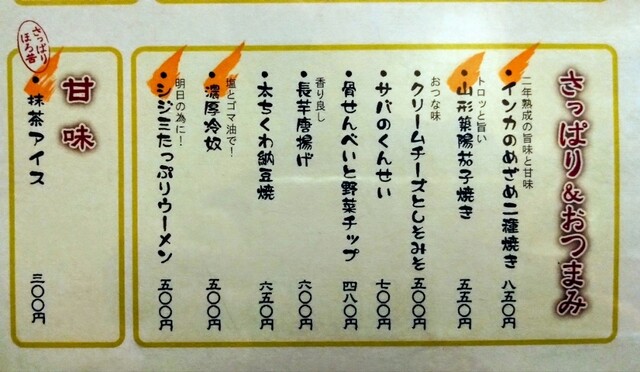 さっぱり&おつまみ
二年熟成の旨味と甘味
・インカのめざめ二種焼き 八五〇円
トロッと旨い
・山形薬陽茄子焼き 五五〇円
おつな味
・クリームチーズとしそみそ 五〇〇円
・サバのくんせい 七〇〇円
・骨せんべいと野菜チップ 四八〇円
香り良し
・長芋唐揚げ 六〇〇円
・太ちくわ納豆焼 六五〇円
塩とゴマ油で!
・濃厚冷奴 五〇〇円
明日の為に!
・シジミたっぷりウーメン 五〇〇円
甘味
さっぱり
ほろ苦
・抹茶アイス 三〇〇円